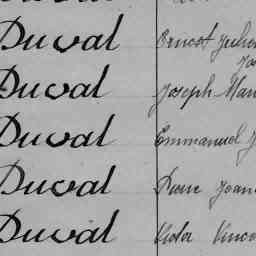 Duval Ernest Julien
Duval Joseph
Duval Emmanuel
Duval Pierre
Duval Victor